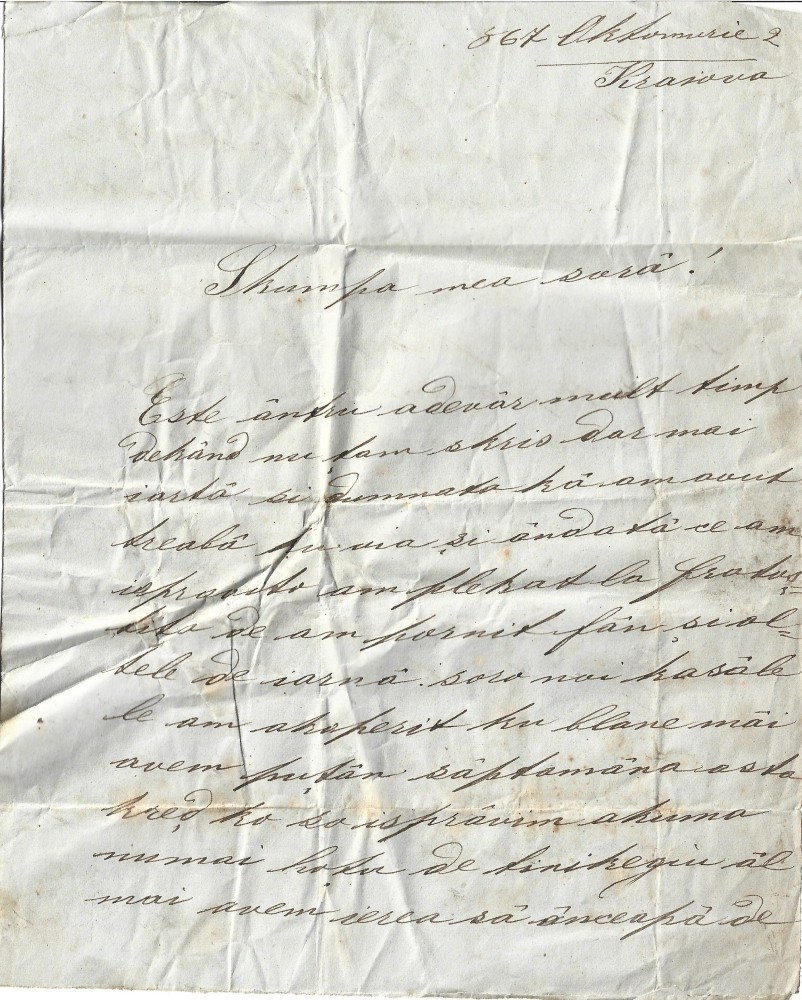 867 Oktomvrie 2
Kraiova
Skumpa mea sorâ!
Este ântru adevâr mult timp
dekând nu țam skris dar mai
iartâ și dumnata kâ am avut
treabâ ku via și ândatâ ce am
ispravito am plekat la Fratoș=
tița de am pornit fân și al=
tele de iarnâ. soro noi kasâle
le am akoperit ku blane mâi
avem puțân sâptamâna asta
kreḑ ko so isprâvim akuma
numai hotu de tinikegiu âl
mai avem ierea sâ ânceapâ de